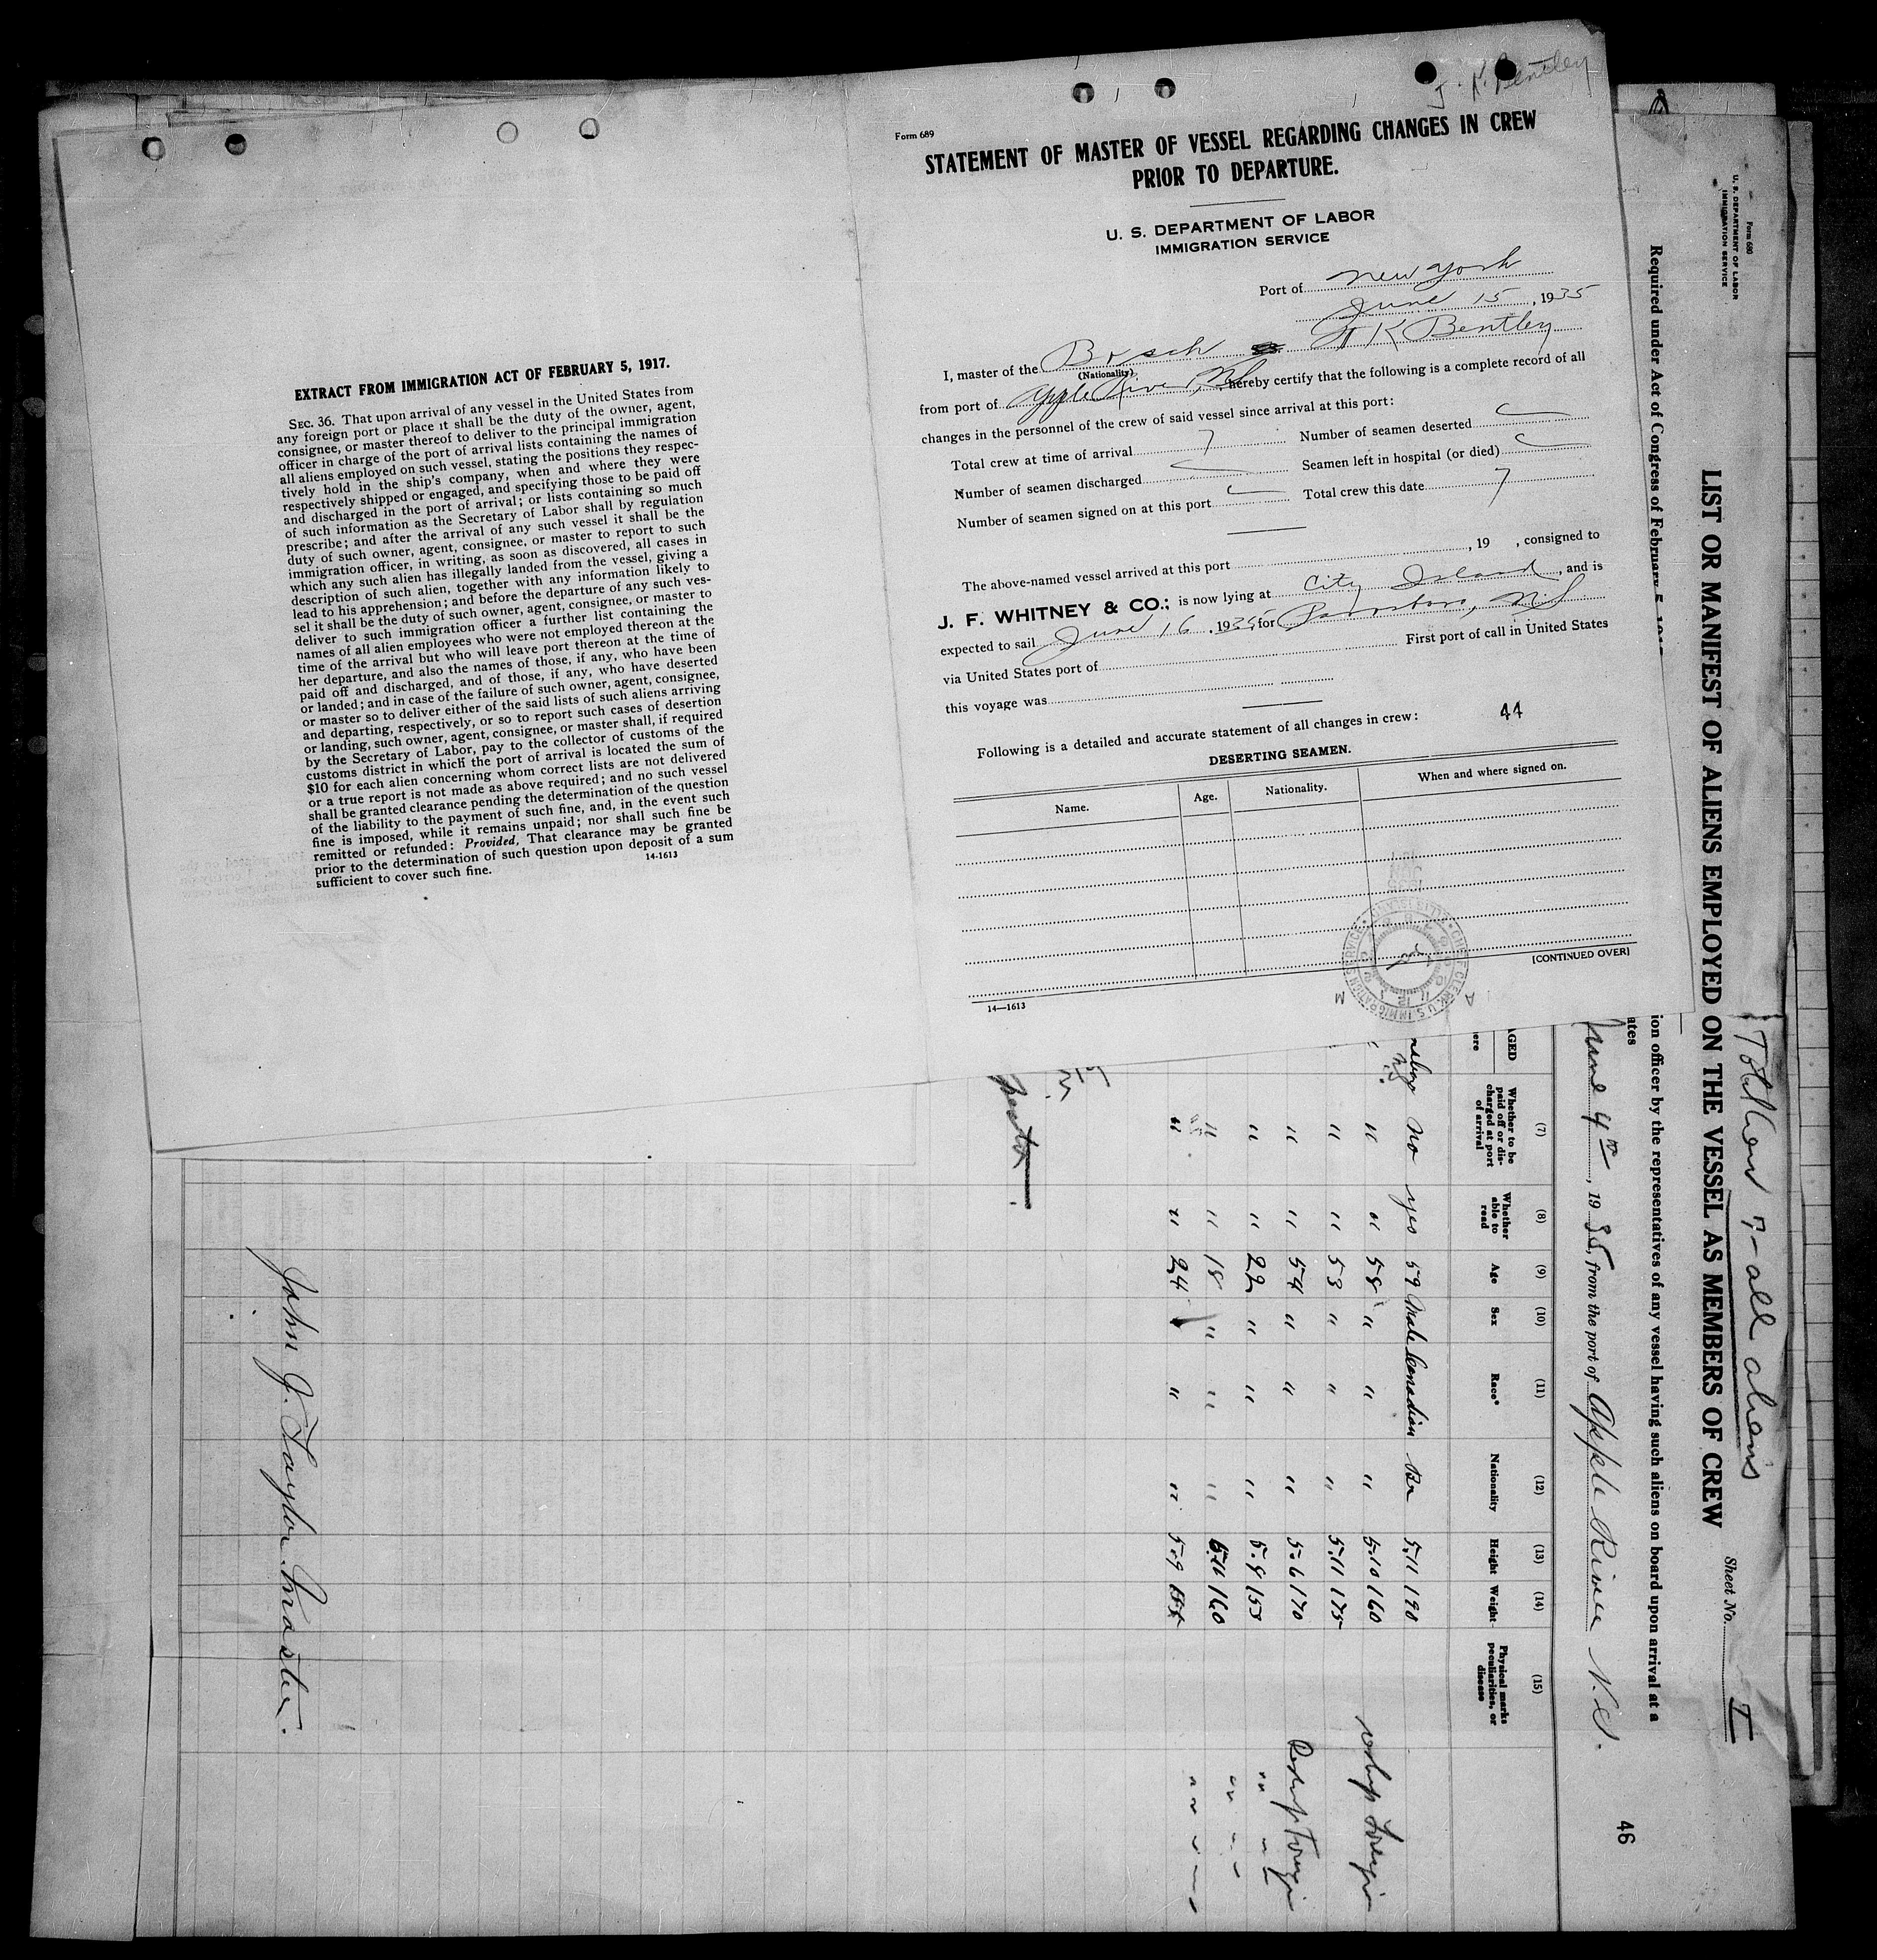 EXTRACT FROM IMMIGRATION ACT OF FEBRUARY 5, 1917.
SEC. 36. That upon arrival of any vessel in the United States from
any foreign port or place it shall be the duty of the owner, agent,
consignee, or master thereof to deliver to the principal immigration
officer in charge of the port of arrival lists containing the names of
all aliens employed on such vessel, stating the positions they respec-
tively hold in the ship's company, when and where they were
respectively shipped or engaged, and specifying those to be paid off
and discharged in the port of arrival; or lists containing so much
of such information as the Secretary of Labor shall by regulation
prescribe; and after the arrival of any such vessel it shall be the
duty of such owner, agent, consignee, or master to report to such
immigration officer, in writing, as soon as discovered, all cases in
which any such alien has illegally landed from the vessel, giving a
description of such alien, together with any information likely to
lead to his apprehension; and before the departure of any such ves-
sel it shall be the duty of such owner, agent, consignee, or master to
deliver to such immigration officer a further list containing the
names of all alien employees who were not employed thereon at the
time of the arrival but who will leave port thereon at the time of
her departure, and also the names of those, if any, who have been
paid off and discharged, and of those, if any, who have deserted
or landed; and in case of the failure of such owner, agent, consignee,
or master so to deliver either of the said lists of such aliens arriving
and departing, respectively, or so to report such cases of desertion
or landing, such owner, agent, consignee, or master shall, if required
by the Secretary of Labor, pay to the collector of customs of the
customs district in which the port of arrival is located the sum of
$10 for each alien concerning whom correct lists are not delivered
or a true report is not made as above required; and no such vessel
shall be granted clearance pending the determination of the question
of the liability to the payment of such fine, and, in the event such
fine is imposed, while it remains unpaid; nor shall such fine be
remitted or refunded: Provided, That clearance may be granted
prior to the determination of such question upon deposit of a sum
sufficient to cover such fine.
14-1613
K. Bentley
Form 689
STATEMENT OF MASTER OF VESSEL REGARDING CHANGES IN CREW
PRIOR TO DEPARTURE.
U. S. DEPARTMENT OF LABOR
IMMIGRATION SERVICE
Port of New York
June 15, 1935
I, master of the Br sch K Bentley
(Nationality)
from port of Apple River, N.S., hereby certify that the following is a complete record of all
changes in the personnel of the crew of said vessel since arrival at this port:
Total crew at time of arrival 7 Number of seamen deserted
Number of seamen discharged Seamen left in hospital (or died)
Number of seamen signed on at this port Total crew this date 7
The above-named vessel arrived at this port , 19 , consigned to
J. F. WHITNEY & CO.; is now lying at City Island, and is
expected to sail June 16, 1935, for Parrsboro, N.S.
via United States port of First port of call in United States
this voyage was
Following is a detailed and accurate statement of all changes in crew: 44
DESERTING SEAMEN.
Name. Age. Nationality. When and where signed on.
[CONTINUED OVER]
14—1613
CHIEF CLERK U.S. IMMIGRATION SERVICE ELLIS ISLAND
Form 680
U. S. DEPARTMENT OF LABOR
IMMIGRATION SERVICE
Total Crew 7 - all aliens
Sheet No. I
LIST OR MANIFEST OF ALIENS EMPLOYED ON THE VESSEL AS MEMBERS OF CREW
Required under Act of Congress of February 5,
ion officer by the representatives of any vessel having such aliens on board upon arrival at a
ates
46
June 4th, 1935, from the port of Apple River N.S.
(7) (8) (9) (10) (11) (12) (13) (14) (15)
Whether to be paid off or discharged at port of arrival Whether able to read Age Sex Race* Nationality Height Weight Physical marks peculiarities, or disease
No yes 59 Male Canadian Br 5.11 190
" " 58 " " " 5.10 160
" " 53 " " " 5.11 175
" " 54 " " " 5.6 170
" " 22 " " " 5.8 153
" " 18 " " " 160
" " 24 " " 5.9
John J. Taylor Master.